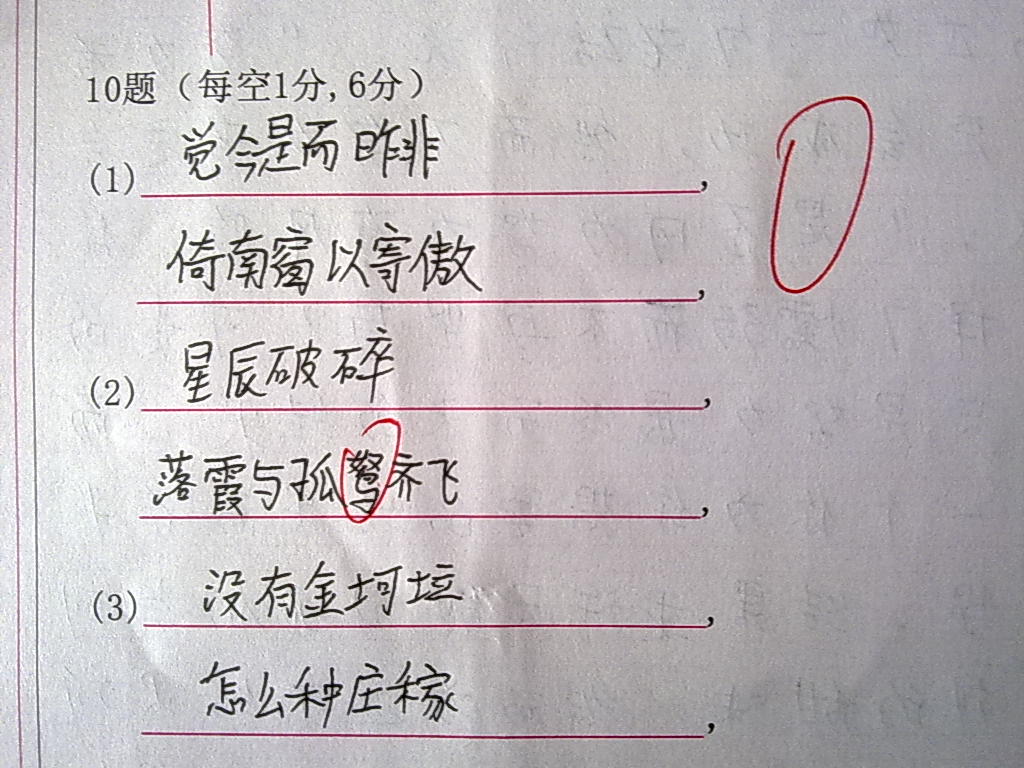 10题（每空1分,6分）
(1) 觉今是而昨非,
倚南窗以寄傲,
(2) 星辰破碎,
落霞与孤鹜齐飞,
(3) 没有金坷垃,
怎么种庄稼,